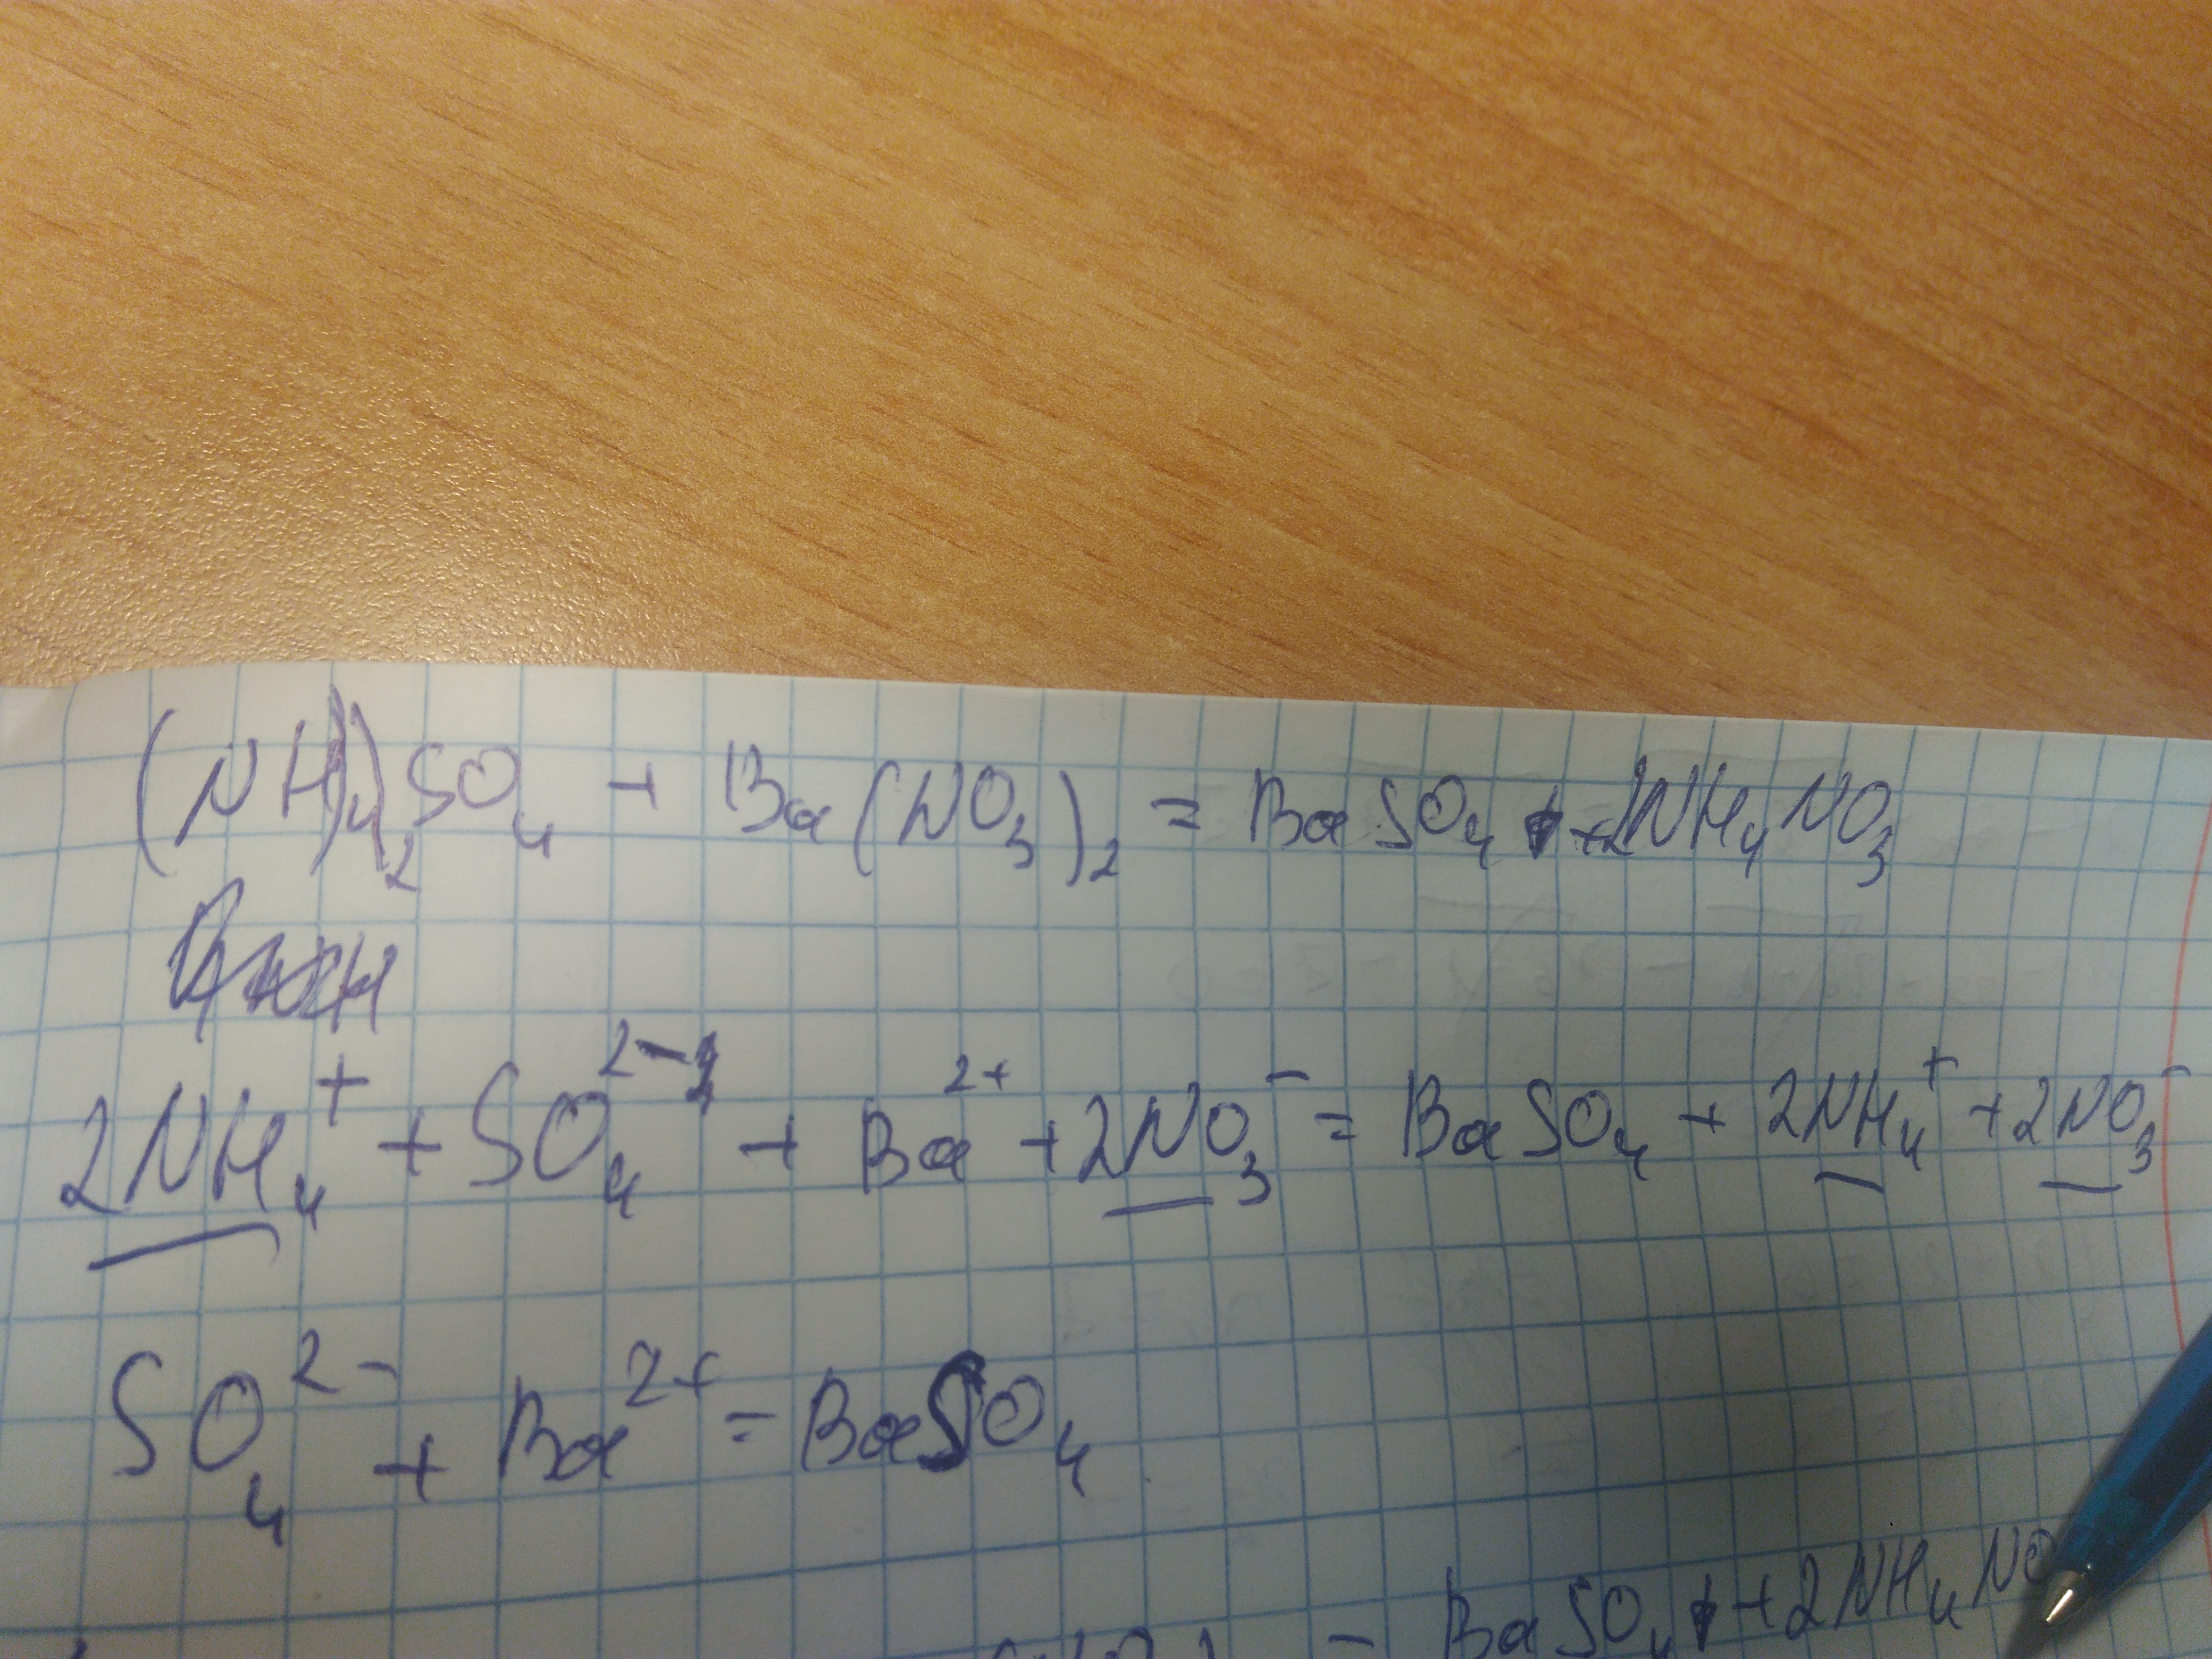 (NH₄)₂SO₄ + Ba(NO₃)₂ = BaSO₄↓ + 2NH₄NO₃
2NH₄⁺ + SO₄²⁻ + Ba²⁺ + 2NO₃⁻ = BaSO₄ + 2NH₄⁺ + 2NO₃⁻
SO₄²⁻ + Ba²⁺ = BaSO₄
BaSO₄↓ + 2NH₄NO